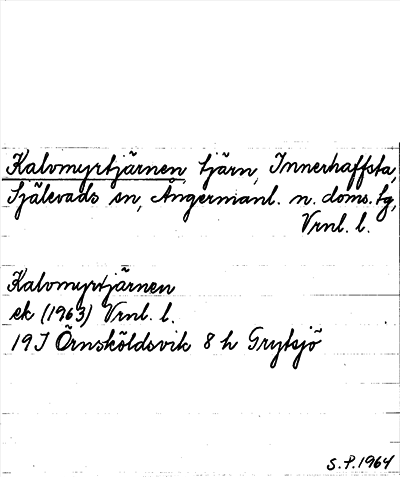 Kalvmyrtjärnen, tjärn, Innerhaffsta,
Själevads sn, Ångermanl. n. doms. tg,
Vrnl. l.
Kalvmyrtjärnen
ek (1963) Vrnl. l.
19 J Örnsköldsvik 8 h Grytsjö
S. F. 1964